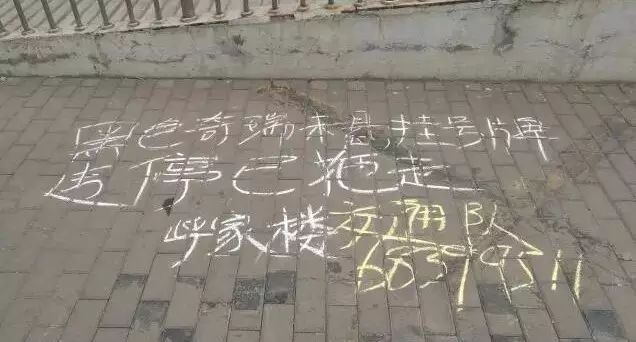 黑色奇瑞未悬挂号牌
违停已拖走
呼家楼交通队
68399311